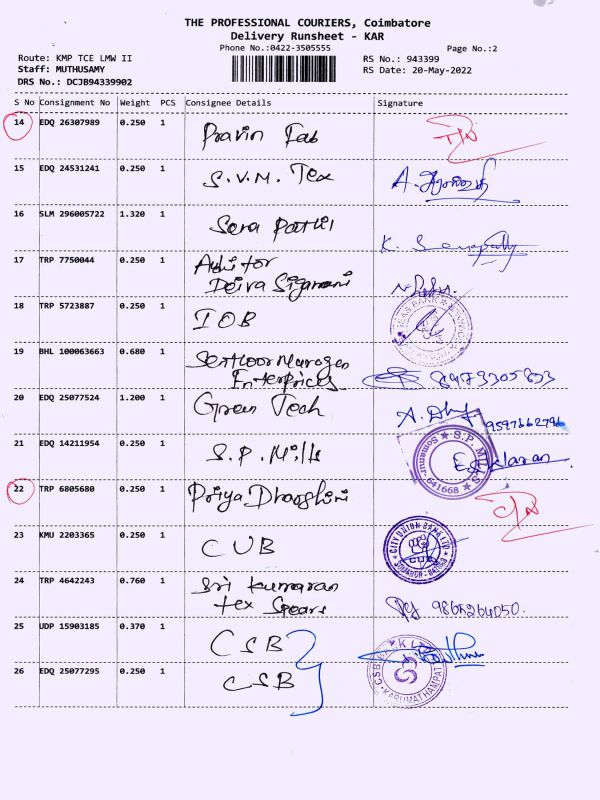 THE PROFESSIONAL COURIERS, Coimbatore
Delivery Runsheet - KAR
Phone No.:0422-3505555
Page No.:2
Route: KMP TCE LMW II
RS No.: 943399
Staff: MUTHUSAMY
RS Date: 20-May-2022
DRS No.: DCJB94339902
S No Consignment No Weight PCS Consignee Details Signature
14 EDQ 26307989 0.250 1 Pravin Fab
15 EDQ 24531241 0.250 1 S.V.M. Tex A.
16 SLM 296005722 1.320 1 K.
17 TRP 7750044 0.250 1 Auditor
Deiva Sigamani
18 TRP 5723887 0.250 1 IOB
19 BHL 100063663 0.680 1 Senthoor Murogan
Enterprices
20 EDQ 25077524 1.200 1 Green Tech A. 9597662796
21 EDQ 14211954 0.250 1 S.P. Mills S.P. Somanur 641668
22 TRP 6805680 0.250 1 Priya Dharshini
23 KMU 2203365 0.250 1 CUB CITY UNION BANK LTD CUB
24 TRP 4642243 0.760 1 Sri Kumaran 9865264050.
tex Spears
25 UDP 15903185 0.370 1 CSB
26 EDQ 25077295 0.250 1 CSB